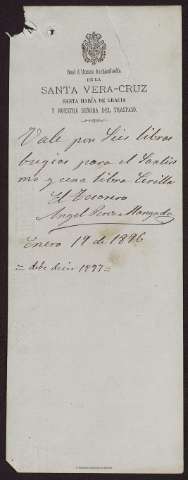 Real é Ilustre Archicofradía
DE LA
SANTA VERA-CRUZ
SANTA MARÍA DE GRACIA
Y NUESTRA SEÑORA DEL TRASPASO.
Vale por Seis libras
bugias para el Santisi
mo y una libra Cerilla
El Tesorero
Angel Perez
Enero 19 de 1896
= debe decir 1897 =